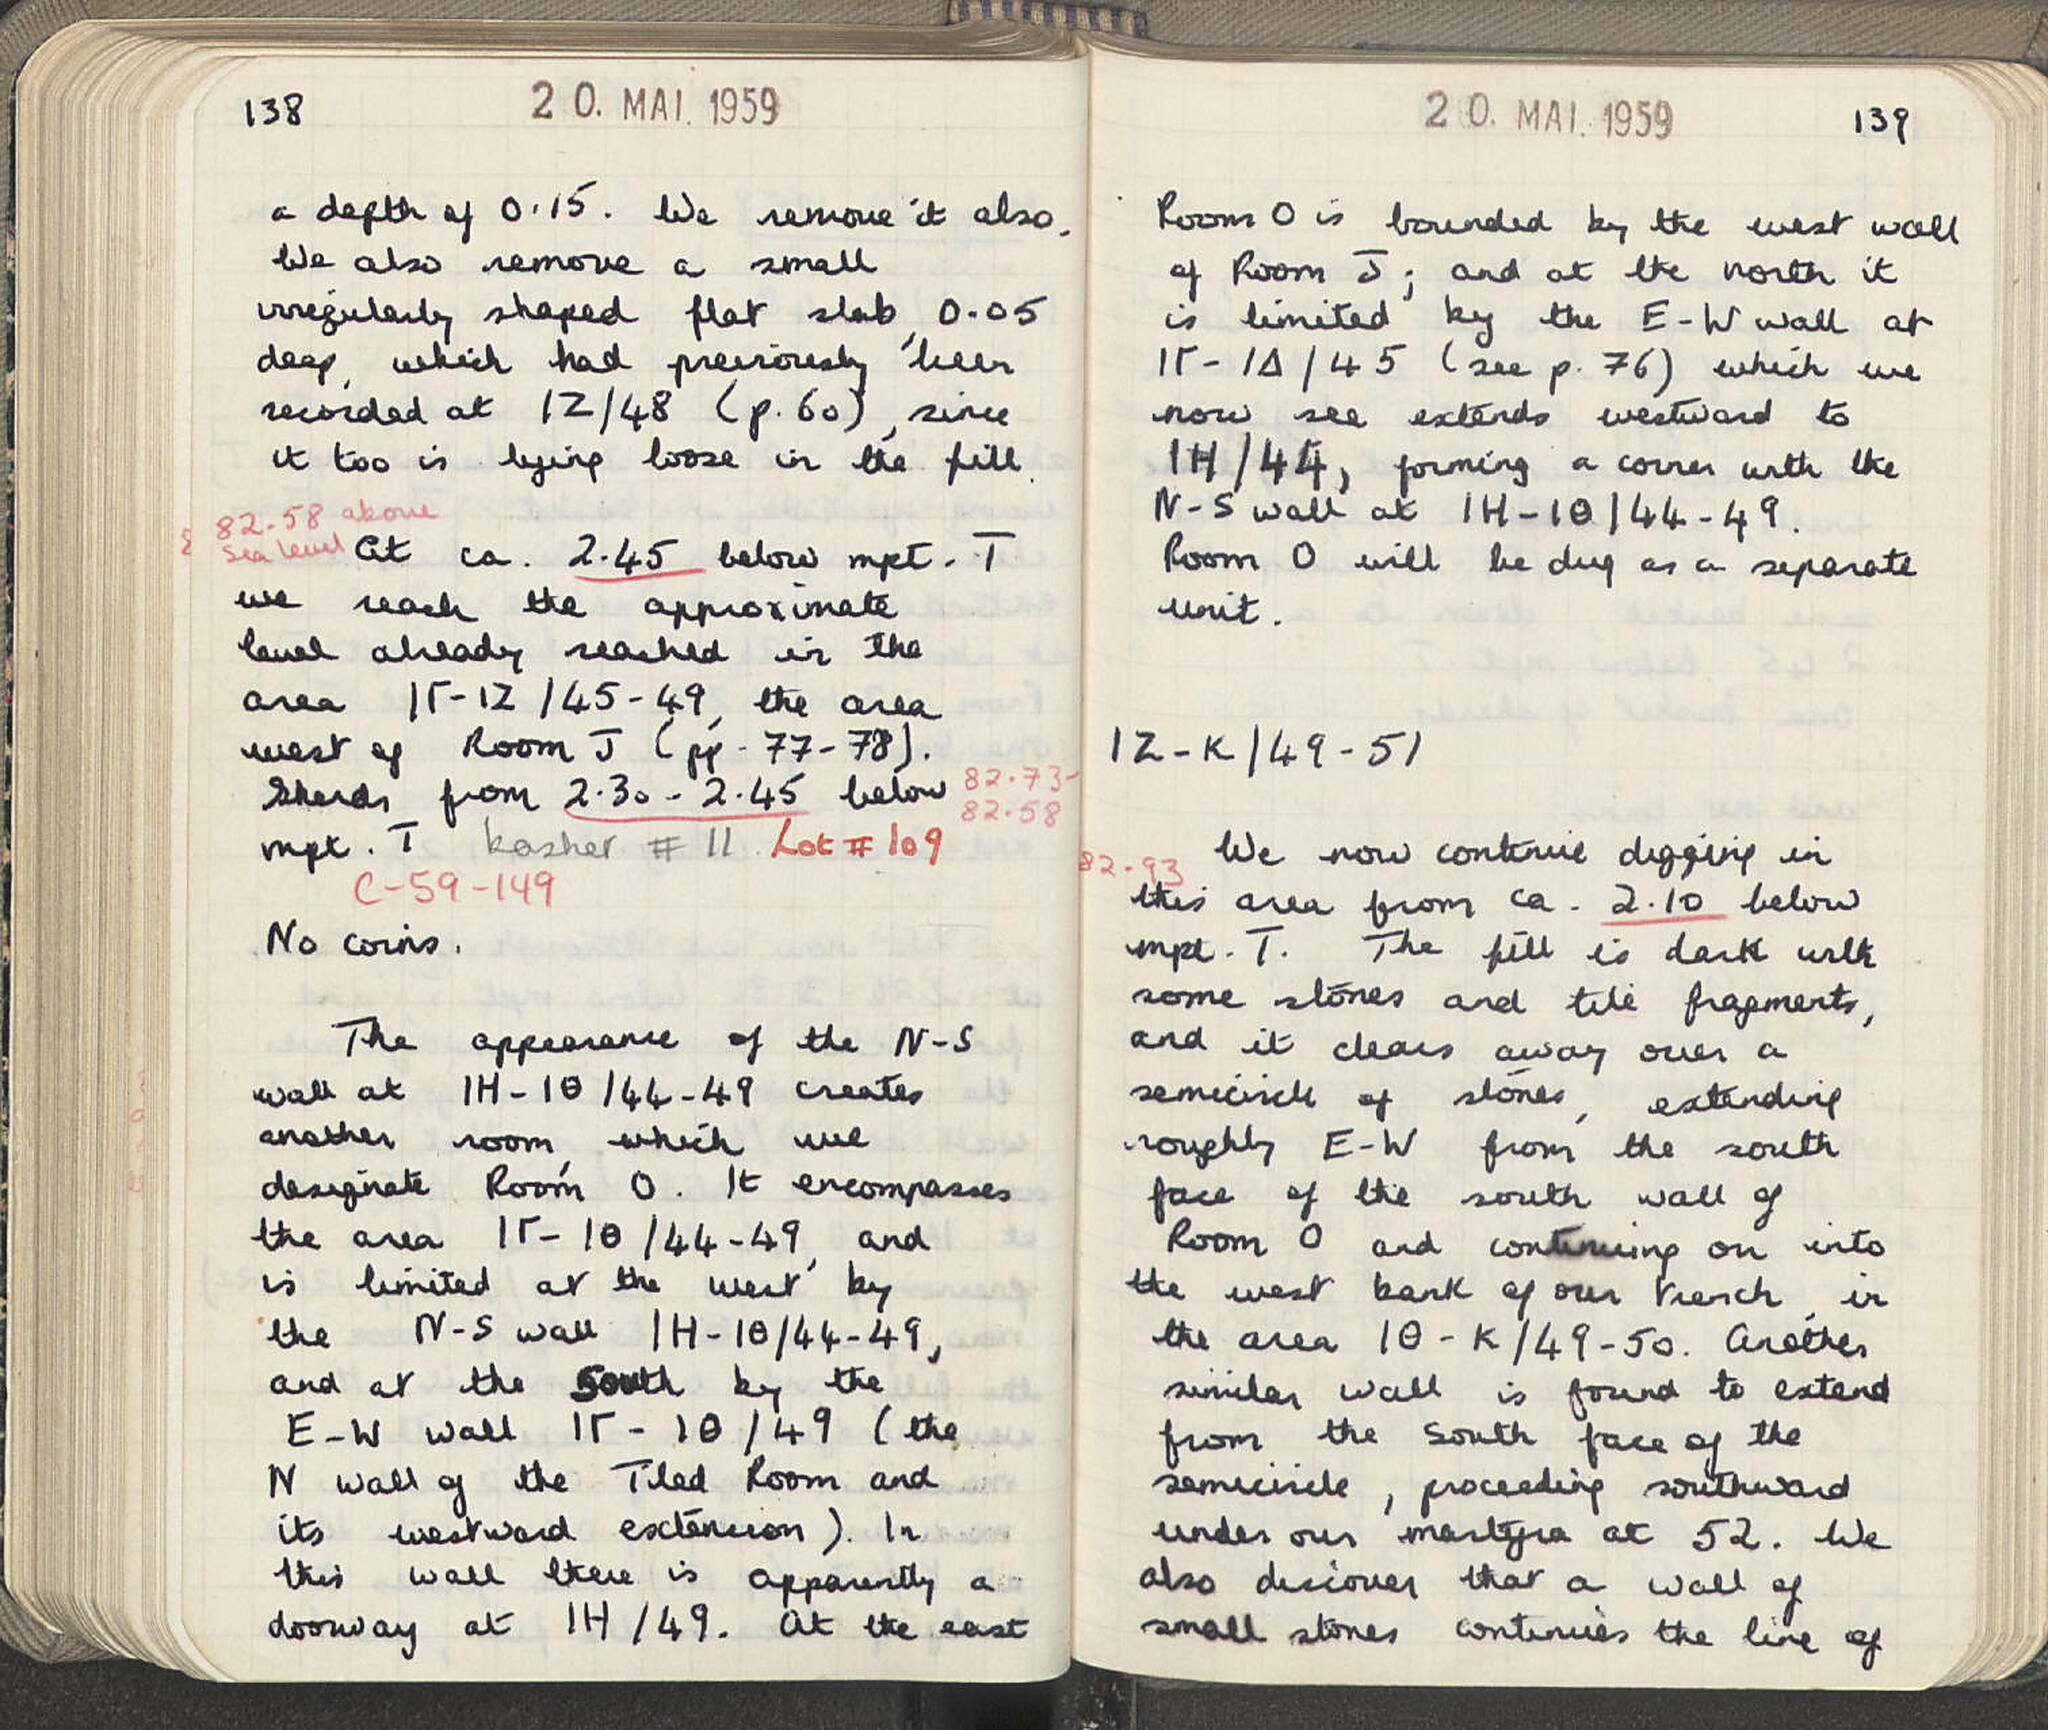 138
20. MAI. 1959
a depth of 0.15. We remove it also.
We also remove a small
irregularly shaped flat slab, 0.05
deep, which had previously been
recorded at ΙΖ/48 (p. 60), since
it too is lying loose in the fill.
82.58 above
sea level
At ca. 2.45 below mpt. T
we reach the approximate
level already reached in the
area ΙΓ-ΙΖ/45-49, the area
west of Room J (pp. 77-78).
Sherds from 2.30-2.45 below 82.73-
82.58
mpt. T basket # 11 Lot # 109
C-59-149
No coins.
The appearance of the N-S
wall at ΙΗ-ΙΘ/44-49 creates
another room, which we
designate Room O. It encompasses
the area ΙΓ-ΙΘ/44-49, and
is limited at the west by
the N-S wall ΙΗ-ΙΘ/44-49,
and at the South by the
E-W wall ΙΓ-ΙΘ/49 (the
N wall of the Tiled Room and
its westward extension). In
this wall there is apparently a
doorway at ΙΗ/49. At the east
20. MAI. 1959
139
Room O is bounded by the west wall
of Room J; and at the north it
is limited by the E-W wall at
ΙΓ-ΙΔ/45 (see p. 76) which we
now see extends westward to
ΙΗ/44, forming a corner with the
N-S wall at ΙΗ-ΙΘ/44-49.
Room O will be dug as a separate
unit.
ΙΖ-Κ/49-51
We now continue digging in
82.93
this area from ca. 2.10 below
mpt. T. The fill is dark with
some stones and tile fragments,
and it clears away over a
semicircle of stones, extending
roughly E-W from the south
face of the south wall of
Room O and continuing on into
the west bank of our trench, in
the area ΙΘ-Κ/49-50. Another
similar wall is found to extend
from the South face of the
semicircle, proceeding southward
under our martyra at 52. We
also discover that a wall of
small stones continues the line of